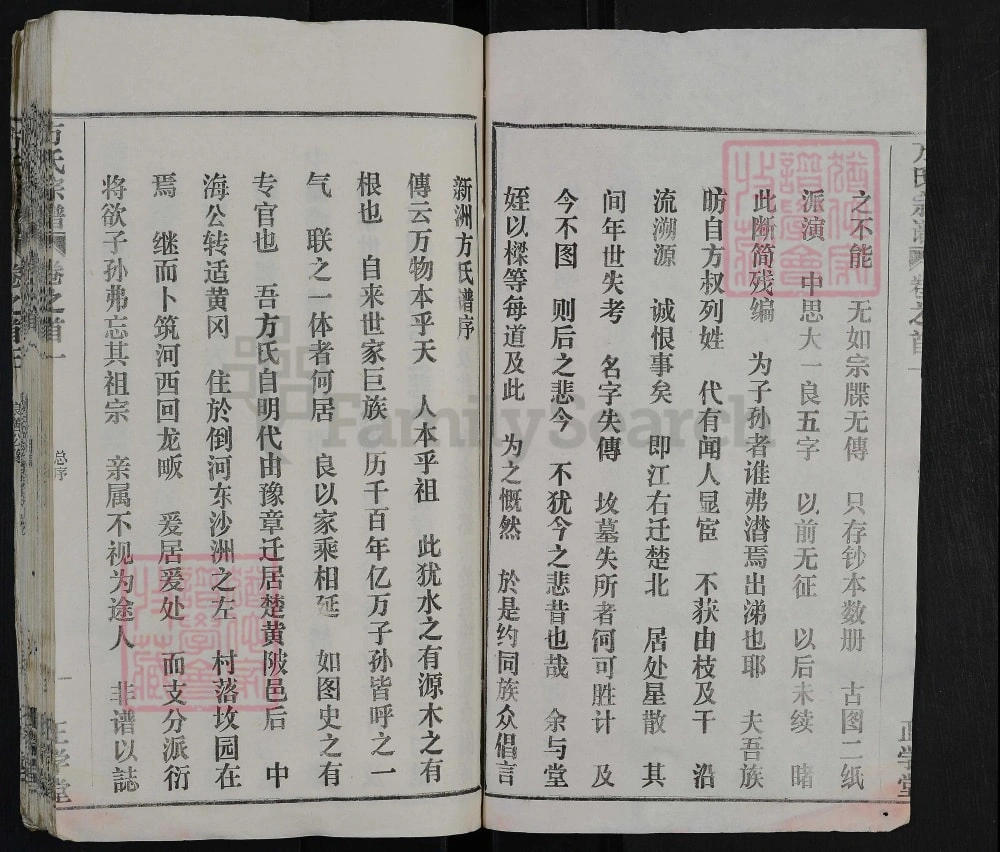 方氏宗譜 卷之首 一 正学堂
之不能 无如宗牒无傳 只存钞本数册 古图二纸
派演 中思大一良五字 以前无征 以后未续 睹
此断简残编 为子孙者谁弗潸焉出涕也耶 夫吾族
昉自方权列姓 代有闻人显宦 不获由枝及干 沿
流溯源 诚恨事矣 即江右迁楚北 居处星散 其
间年世失考 名字失傳 坟墓失所者何可胜计 及
今不图 则后之悲今 不犹今之悲昔也哉 余与堂
姪以樑等每道及此 为之慨然 於是约同族众倡言
新洲方氏谱序
傳云万物本乎天 人本乎祖 此犹水之有源木之有
根也 自来世家巨族 历千百年亿万子孙皆呼之一
气 联之一体者何居 良以家乘相延 如图史之有
专官也 吾方氏自明代由豫章迁居楚黄陂邑后 中
海公转适黄冈 住於倒河东沙洲之左 村落坟园在
焉 继而卜筑河西回龙畈 爰居爰处 而支分派衍
将欲子孙弗忘其祖宗 亲属不视为途人 非谱以誌
方氏宗譜 卷之首一 总序 一 正学堂
FamilySearch